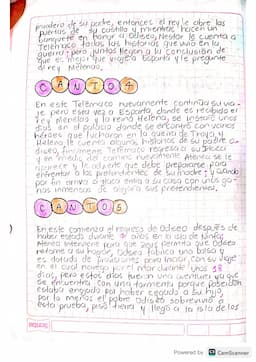 manera de su parte, entonces el rey le abre las
puertas de su castillo y mientras hacen un
banquete en honor a Odiseo, Nestor le cuenta a
Telémaco todas las historias que vivio en la
guerra, pero juntos llegan a la conclusión de
que es mejor que viaje a Esparta y le pregunte
al rey Menelao.
CANTO 4
En este Telémaco nuevamente continúa su via-
je, pero esta vez a Esparta, donde es recibido el
rey Menelao y la reina Helena, se instaló unos
días en el palacio donde se encontró con varios
héroes que lucharon en la guerra de Troya, y
Helena le cuenta algunas historias de su padre O-
diseo, finalmente Telémaco regresa a su
y en medio del camino nuevamente Atenea se le
aparece y le advierte que debe prepararse para
enfrentar a los pretendientes de su madre; y cuando
por fin arriva a Ítaca entra a su casa con unas ga-
nas inmensas de alejar a sus pretendientes.
CANTO 5
En este comienza el regreso de Odiseo después de
haber estado durante 7 años en la isla de Ninfa;
Atenea interviene para que Zeus permita que Odiseo
retorne a su hogar, Odiseo fabrica una balsa y
es dotado de provisiones para iniciar con su viaje
en el cual navega por el mar durante unos 18
días, pero estos días fueron una aventura ya que
se encuentra con una tormenta porque poseidón
estaba enojado por haber cegado a su hijo,
por lo menos el pobre Odiseo sobrevivió a
esta prueba, pisó tierra y llegó a la isla de los
Powered by CamScanner